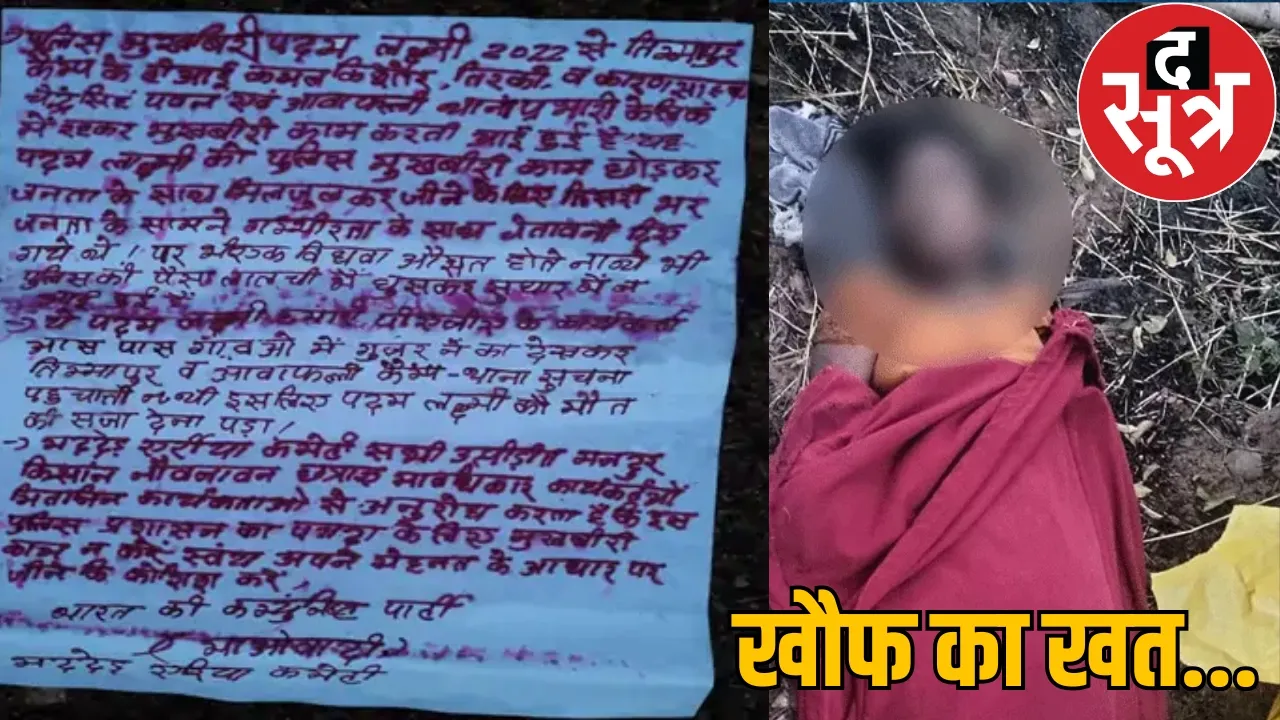 पुलिस मुखबीरी पदम लक्ष्मी 2022 से तिम्मापुर
कैम्प के डीआई कमल किशोर, तिरकी, व कारण
पवन एवं आवापल्ली थाना प्रभारी के
में रहकर मुखबीरी काम करती आई हुई है यह
पदम लक्ष्मी को पुलिस मुखबीरी काम छोड़कर
जनता के साथ मिलजुलकर जीने के लिए भर
जनता के सामने गम्भीरता के साथ चेतावनी दिए
गये थे। पर भी एक विधवा औरत होते नाते भी
पुलिस की पैसा लालची में घुसकर सुधार में न
आई हुई है
→ ये पदम लक्ष्मी हमारे पीएलजीए के
आस पास गांवओ में गुजर ने का देखकर
तिम्मापुर व आवापल्ली कैम्प-थाना सूचना
पहुचाती थी इसलिए पदम लक्ष्मी को मौत
की सजा देना पड़ा।
→ मद्देड़ एरीया कमेटी सभी मजदूर
किसान
कार्यकर्ताओ से अनुरोध करता है कि इस
पुलिस प्रशासन का के लिए मुखबीरी
काम न करें, स्वंय अपने मेहनत के आधार पर
जीने कि कोशिश करें,
भारत की कम्युनिष्ट पार्टी
(माओवादी)
मद्देड़ एरिया कमेटी
द
सूत्र
खौफ का खत...